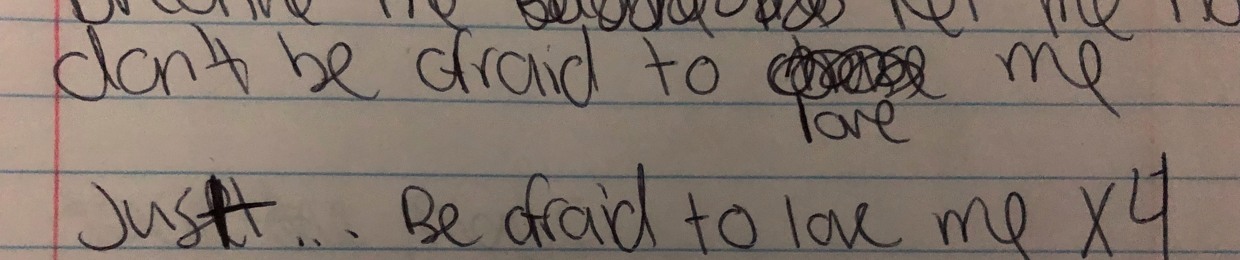 me let me
don't be afraid to me
love
Just... Be afraid to love me X4